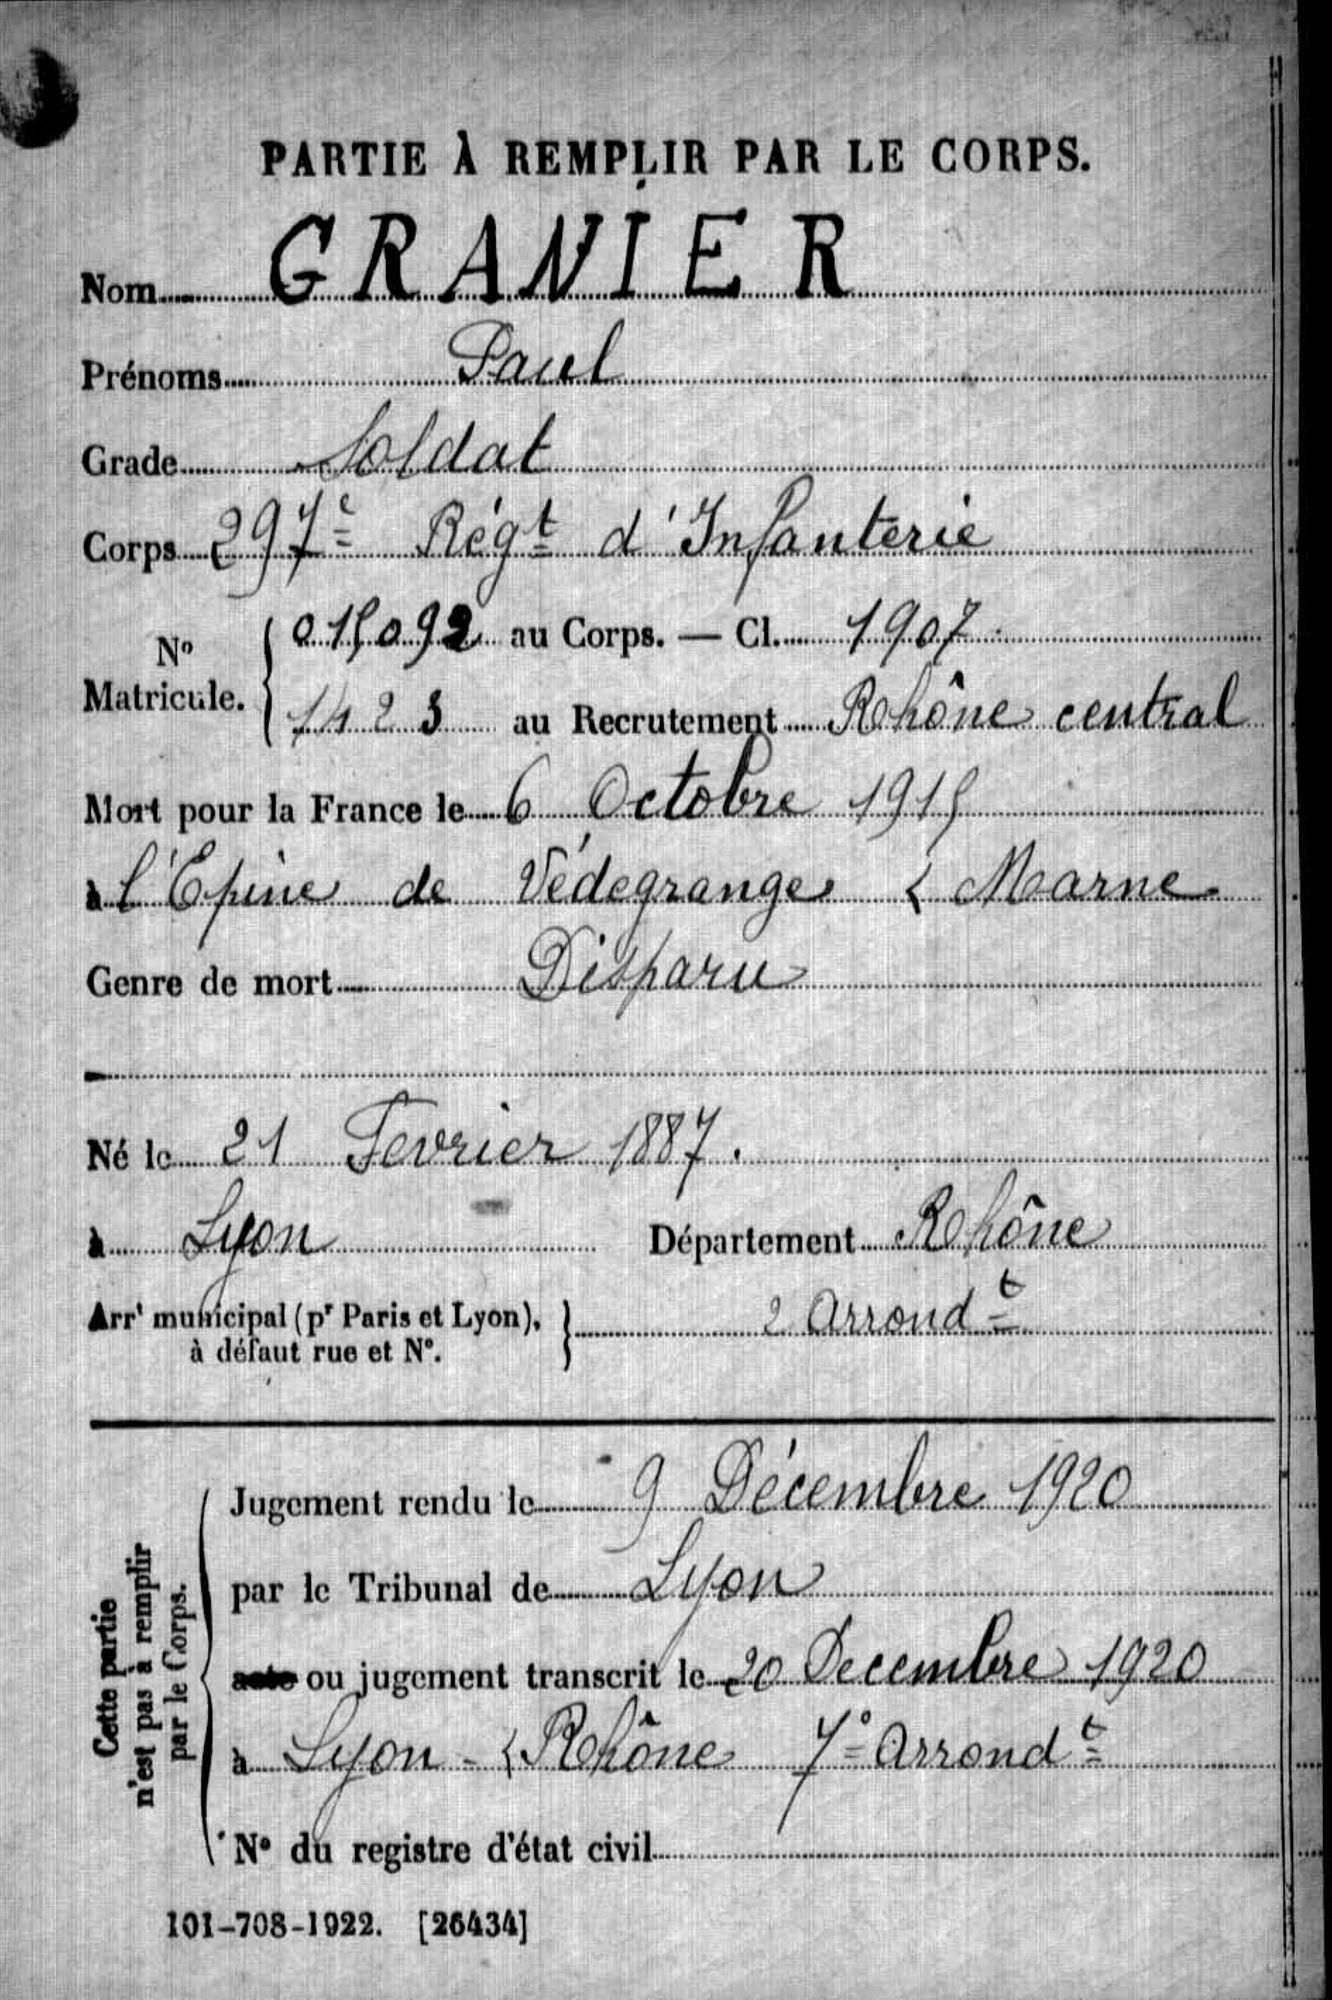 PARTIE À REMPLIR PAR LE CORPS.
Nom GRANIER
Prénoms Paul
Grade Soldat
Corps 297e Régt d'Infanterie
No Matricule. 015092 au Corps. — Cl. 1907
1423 au Recrutement Rhône central
Mort pour la France le 6 Octobre 1915
à l'Epine de Védegrange ( Marne
Genre de mort Disparu
Né le 21 Fevrier 1887.
à Lyon Département Rhône
Arrt municipal (pr Paris et Lyon), 2 Arrondt
à défaut rue et No.
Cette partie
n'est pas à remplir
par le Corps.
Jugement rendu le 9 Décembre 1920
par le Tribunal de Lyon
acte ou jugement transcrit le 20 Decembre 1920
à Lyon - (Rhône 7e Arrondt
No du registre d'état civil
101-708-1922. [26434]